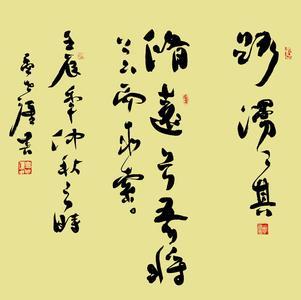 路漫々其
脩遠兮吾將
上下而求索。
壬辰年仲秋之時
書